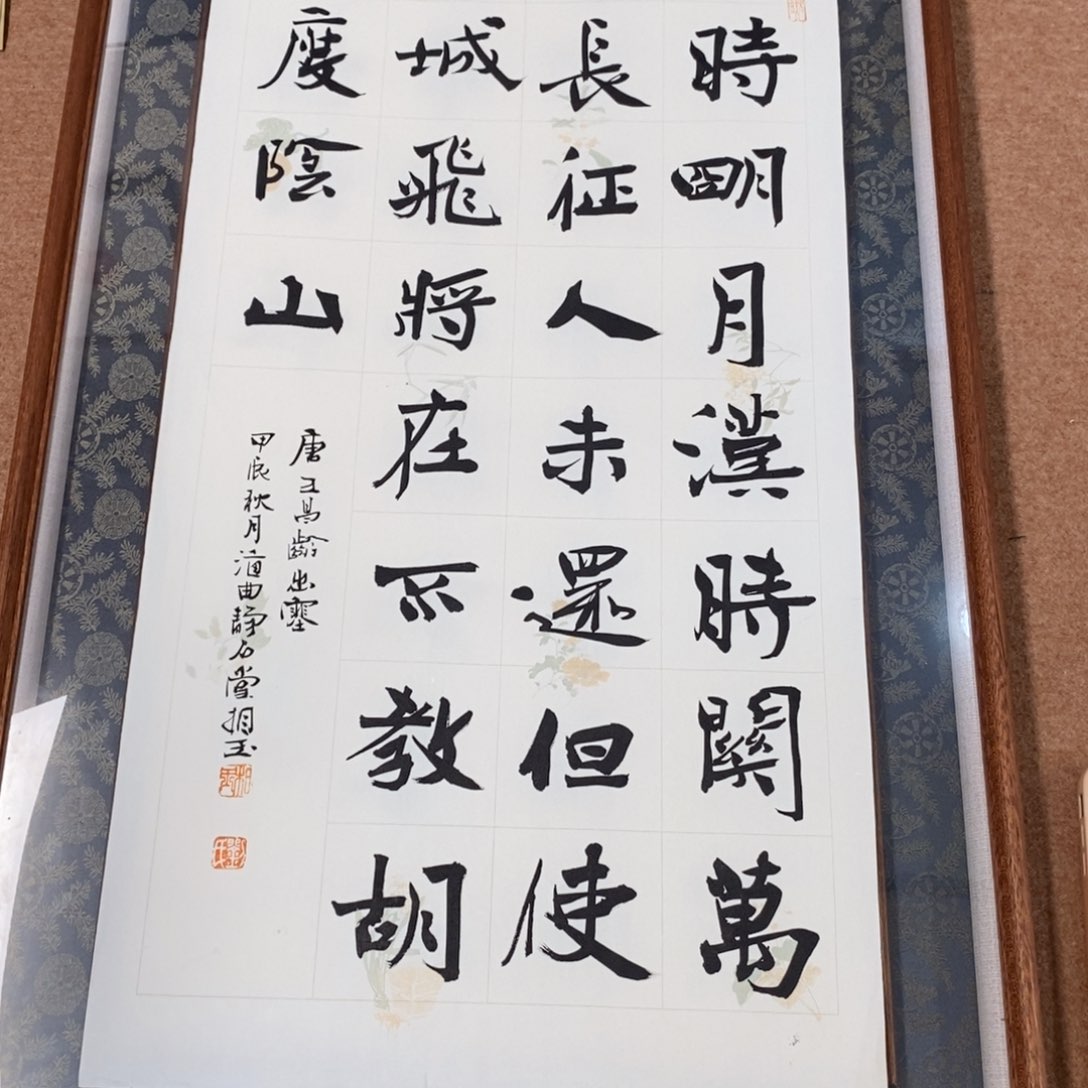 時明月漢時關萬
長征人未還但使
城飛將在不教胡
度陰山
唐王昌齡出塞
甲辰秋月曲靜石堂相玉